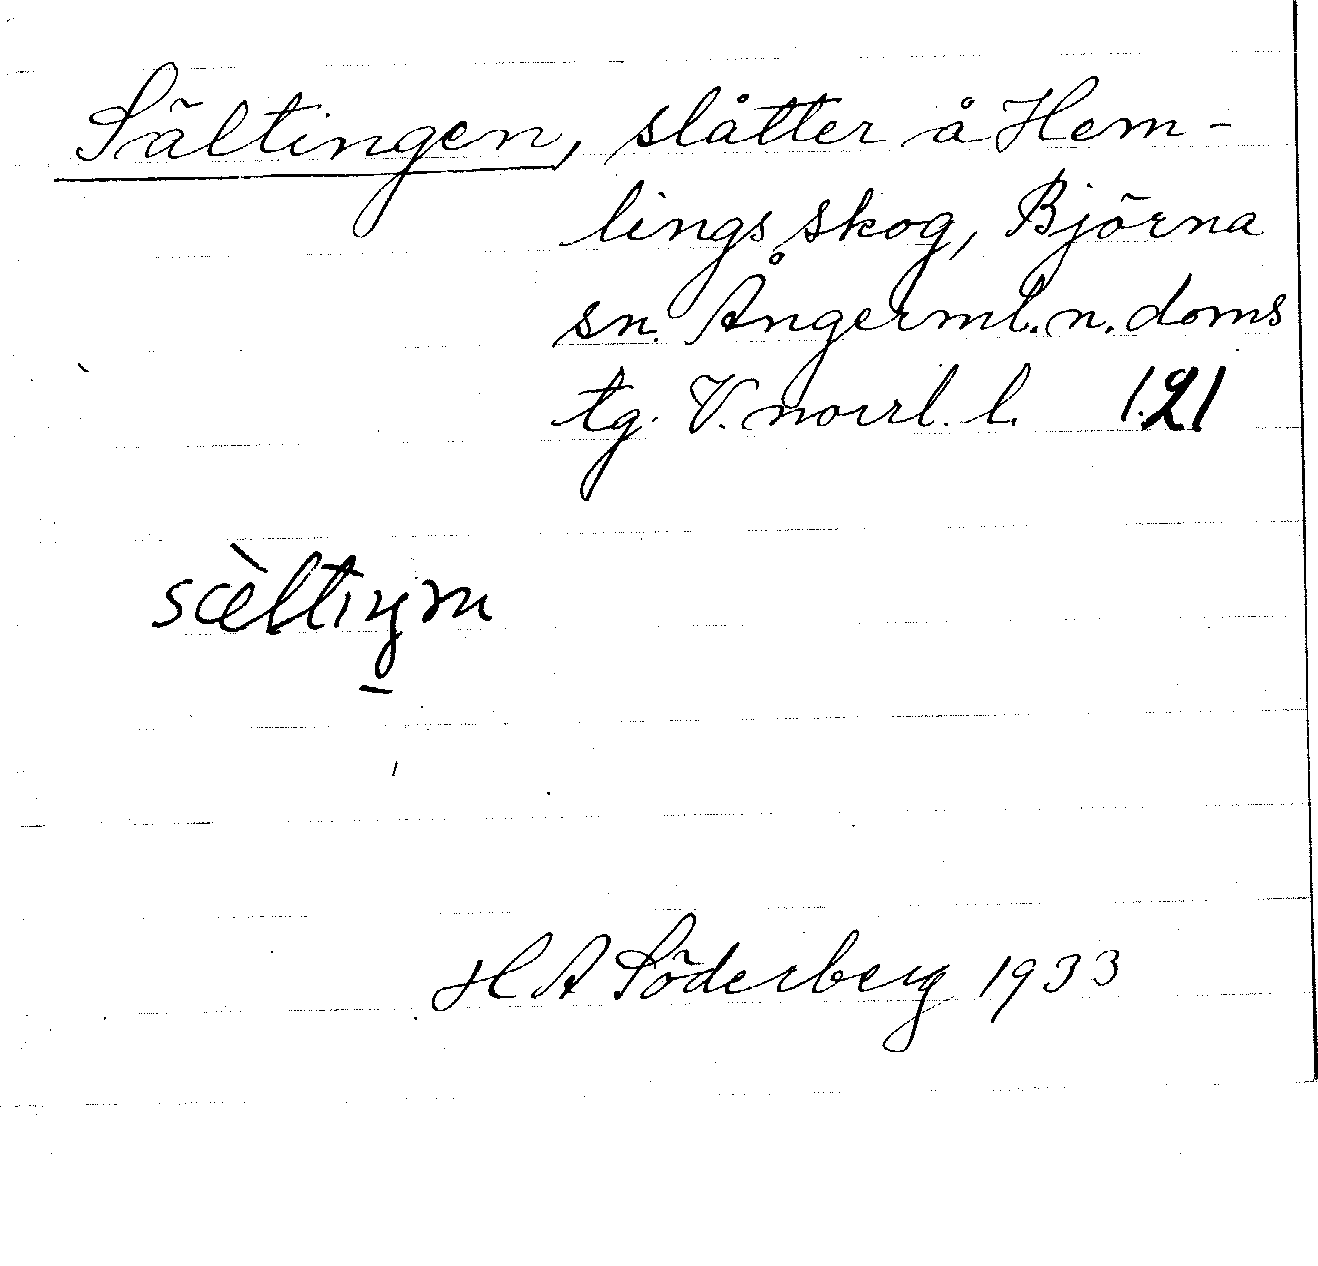 Sältingen, slåtter å Hem-
lings skog, Björna
sn. Ångerml. n. doms
tg. V. norrl. l. 1.21
sæ̀ltıŋm
H A Söderberg 1933